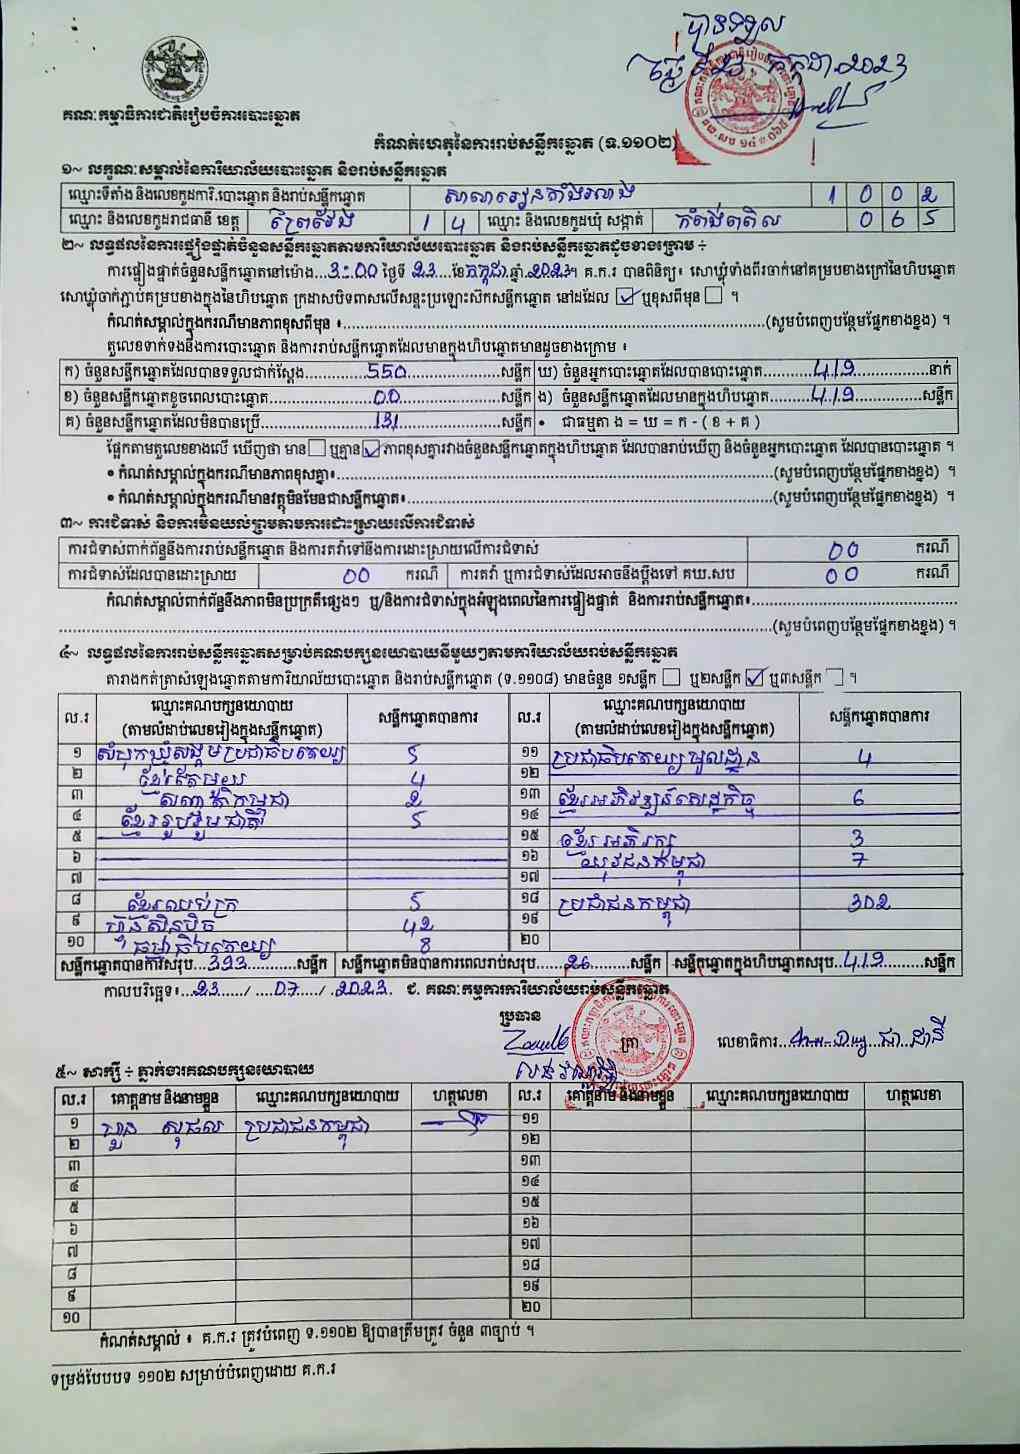 បានទទួល
ថ្ងៃទី២៣ កក្កដា ២០២៣
គណៈកម្មាធិការជាតិរៀបចំការបោះឆ្នោត
កំណត់ហេតុនៃការរាប់សន្លឹកឆ្នោត (ទ.១១០២)
១~ លក្ខណៈសម្គាល់នៃការិយាល័យបោះឆ្នោត និងរាប់សន្លឹកឆ្នោត
ឈ្មោះទីតាំង និងលេខកូដការិ.បោះឆ្នោត និងរាប់សន្លឹកឆ្នោត សាលារៀន 1 0 0 ២
ឈ្មោះ និងលេខកូដរាជធានី ខេត្ត ព្រៃវែង 1 4 ឈ្មោះ និងលេខកូដឃុំ សង្កាត់ 0 6 5
២~ លទ្ធផលនៃការផ្ទៀងផ្ទាត់ចំនួនសន្លឹកឆ្នោតតាមការិយាល័យបោះឆ្នោត និងរាប់សន្លឹកឆ្នោតដូចខាងក្រោម ÷
ការផ្ទៀងផ្ទាត់ចំនួនសន្លឹកឆ្នោតនៅម៉ោង...3:00 ថ្ងៃទី 23 ខែកក្កដា ឆ្នាំ 2023។ គ.ក.រ បានពិនិត្យ៖ សោឃ្លុំទាំងពីរចាក់នៅគម្របខាងក្រៅនៃហិបឆ្នោត
សោឃ្លុំចាក់ភ្ជាប់គម្របខាងក្នុងនៃហិបឆ្នោត ក្រដាសបិទពាសលើសន្ទះប្រឡោះស៊ក់សន្លឹកឆ្នោត នៅដដែល ☑ ឬខុសពីមុន ☐ ។
កំណត់សម្គាល់ក្នុងករណីមានភាពខុសពីមុន ៖..........(សូមបំពេញបន្ថែមផ្នែកខាងខ្នង) ។
តួលេខទាក់ទងនឹងការបោះឆ្នោត និងការរាប់សន្លឹកឆ្នោតដែលមានក្នុងហិបឆ្នោតមានដូចខាងក្រោម ៖
ក) ចំនួនសន្លឹកឆ្នោតដែលបានទទួលជាក់ស្តែង.....550.....សន្លឹក ឃ) ចំនួនអ្នកបោះឆ្នោតដែលបានបោះឆ្នោត.....419.....នាក់
ខ) ចំនួនសន្លឹកឆ្នោតខូចពេលបោះឆ្នោត.....00.....សន្លឹក ង) ចំនួនសន្លឹកឆ្នោតដែលមានក្នុងហិបឆ្នោត.....419.....សន្លឹក
គ) ចំនួនសន្លឹកឆ្នោតដែលមិនបានប្រើ.....131.....សន្លឹក • ជាធម្មតា ង = ឃ = ក - ( ខ + គ )
ផ្អែកតាមតួលេខខាងលើ ឃើញថា មាន ☐ ឬគ្មាន ☑ ភាពខុសគ្នារវាងចំនួនសន្លឹកឆ្នោតក្នុងហិបឆ្នោត ដែលបានរាប់ឃើញ និងចំនួនអ្នកបោះឆ្នោត ដែលបានបោះឆ្នោត ។
• កំណត់សម្គាល់ក្នុងករណីមានភាពខុសគ្នា៖..........(សូមបំពេញបន្ថែមផ្នែកខាងខ្នង) ។
• កំណត់សម្គាល់ក្នុងករណីមានវត្ថុមិនមែនជាសន្លឹកឆ្នោត៖..........(សូមបំពេញបន្ថែមផ្នែកខាងខ្នង) ។
៣~ ការជំទាស់ និងការមិនយល់ព្រមតាមការដោះស្រាយលើការជំទាស់
ការជំទាស់ពាក់ព័ន្ធនឹងការរាប់សន្លឹកឆ្នោត និងការតវ៉ាទៅនឹងការដោះស្រាយលើការជំទាស់ 00 ករណី
ការជំទាស់ដែលបានដោះស្រាយ 00 ករណី ការតវ៉ា ឬការជំទាស់ដែលអាចនឹងប្តឹងទៅ គឃ.សប 00 ករណី
កំណត់សម្គាល់ពាក់ព័ន្ធនឹងភាពមិនប្រក្រតីផ្សេងៗ ឬ/និងការជំទាស់ក្នុងអំឡុងពេលនៃការផ្ទៀងផ្ទាត់ និងការរាប់សន្លឹកឆ្នោត៖..........
..........(សូមបំពេញបន្ថែមផ្នែកខាងខ្នង) ។
៤~ លទ្ធផលនៃការរាប់សន្លឹកឆ្នោតសម្រាប់គណបក្សនយោបាយនីមួយៗតាមការិយាល័យរាប់សន្លឹកឆ្នោត
តារាងកត់ត្រាសំឡេងឆ្នោតតាមការិយាល័យបោះឆ្នោត និងរាប់សន្លឹកឆ្នោត (ទ.១១០៨) មានចំនួន ១សន្លឹក ☐ ឬ២សន្លឹក ☑ ឬ៣សន្លឹក ☐ ។
ល.រ ឈ្មោះគណបក្សនយោបាយ (តាមលំដាប់លេខរៀងក្នុងសន្លឹកឆ្នោត) សន្លឹកឆ្នោតបានការ ល.រ ឈ្មោះគណបក្សនយោបាយ (តាមលំដាប់លេខរៀងក្នុងសន្លឹកឆ្នោត) សន្លឹកឆ្នោតបានការ
១ សំបុកឃ្មុំសង្គមប្រជាធិបតេយ្យ 5 ១១ ប្រជាធិបតេយ្យមូលដ្ឋាន 4
២ ខ្មែរតែមួយ 4 ១២
៣ សញ្ជាតិកម្ពុជា 2 ១៣ ខ្មែរអភិវឌ្ឍន៍សេដ្ឋកិច្ច 6
៤ ខ្មែររួបរួមជាតិ 5 ១៤
៥ ១៥ ខ្មែរអភិរក្ស 3
៦ ១៦ យុវជនកម្ពុជា 7
៧ ១៧
៨ ខ្មែរឈប់ក្រ 5 ១៨ ប្រជាជនកម្ពុជា 302
៩ ហ៊្វុនស៊ិនប៉ិច 42 ១៩
១០ ធម្មាធិបតេយ្យ 8 ២០
សន្លឹកឆ្នោតបានការសរុប...393...សន្លឹក សន្លឹកឆ្នោតមិនបានការពេលរាប់សរុប...26...សន្លឹក សន្លឹកឆ្នោតក្នុងហិបឆ្នោតសរុប...419...សន្លឹក
កាលបរិច្ឆេទ៖...23.../...07.../...2023. ជ. គណៈកម្មការការិយាល័យរាប់សន្លឹកឆ្នោត
ប្រធាន
ត្រា លេខាធិការ
៥~ សាក្សី ÷ ភ្នាក់ងារគណបក្សនយោបាយ
ល.រ គោត្តនាម និងនាមខ្លួន ឈ្មោះគណបក្សនយោបាយ ហត្ថលេខា ល.រ គោត្តនាម និងនាមខ្លួន ឈ្មោះគណបក្សនយោបាយ ហត្ថលេខា
១ សុផល ប្រជាជនកម្ពុជា ១១
២ ១២
៣ ១៣
៤ ១៤
៥ ១៥
៦ ១៦
៧ ១៧
៨ ១៨
៩ ១៩
១០ ២០
កំណត់សម្គាល់ ៖ គ.ក.រ ត្រូវបំពេញ ទ.១១០២ ឱ្យបានត្រឹមត្រូវ ចំនួន ៣ច្បាប់ ។
ទម្រង់បែបបទ ១១០២ សម្រាប់បំពេញដោយ គ.ក.រ